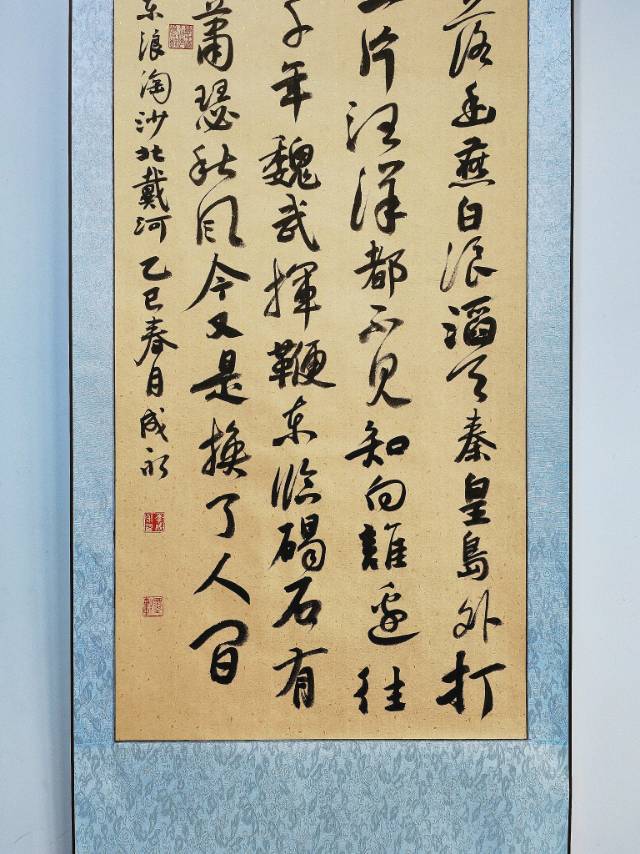 落幽燕白浪滔天秦皇島外打
片汪洋都不見知向誰邊往
千年魏武揮鞭東臨碣石有
蕭瑟秋風今又是換了人間
東浪淘沙北戴河乙巳春月成永